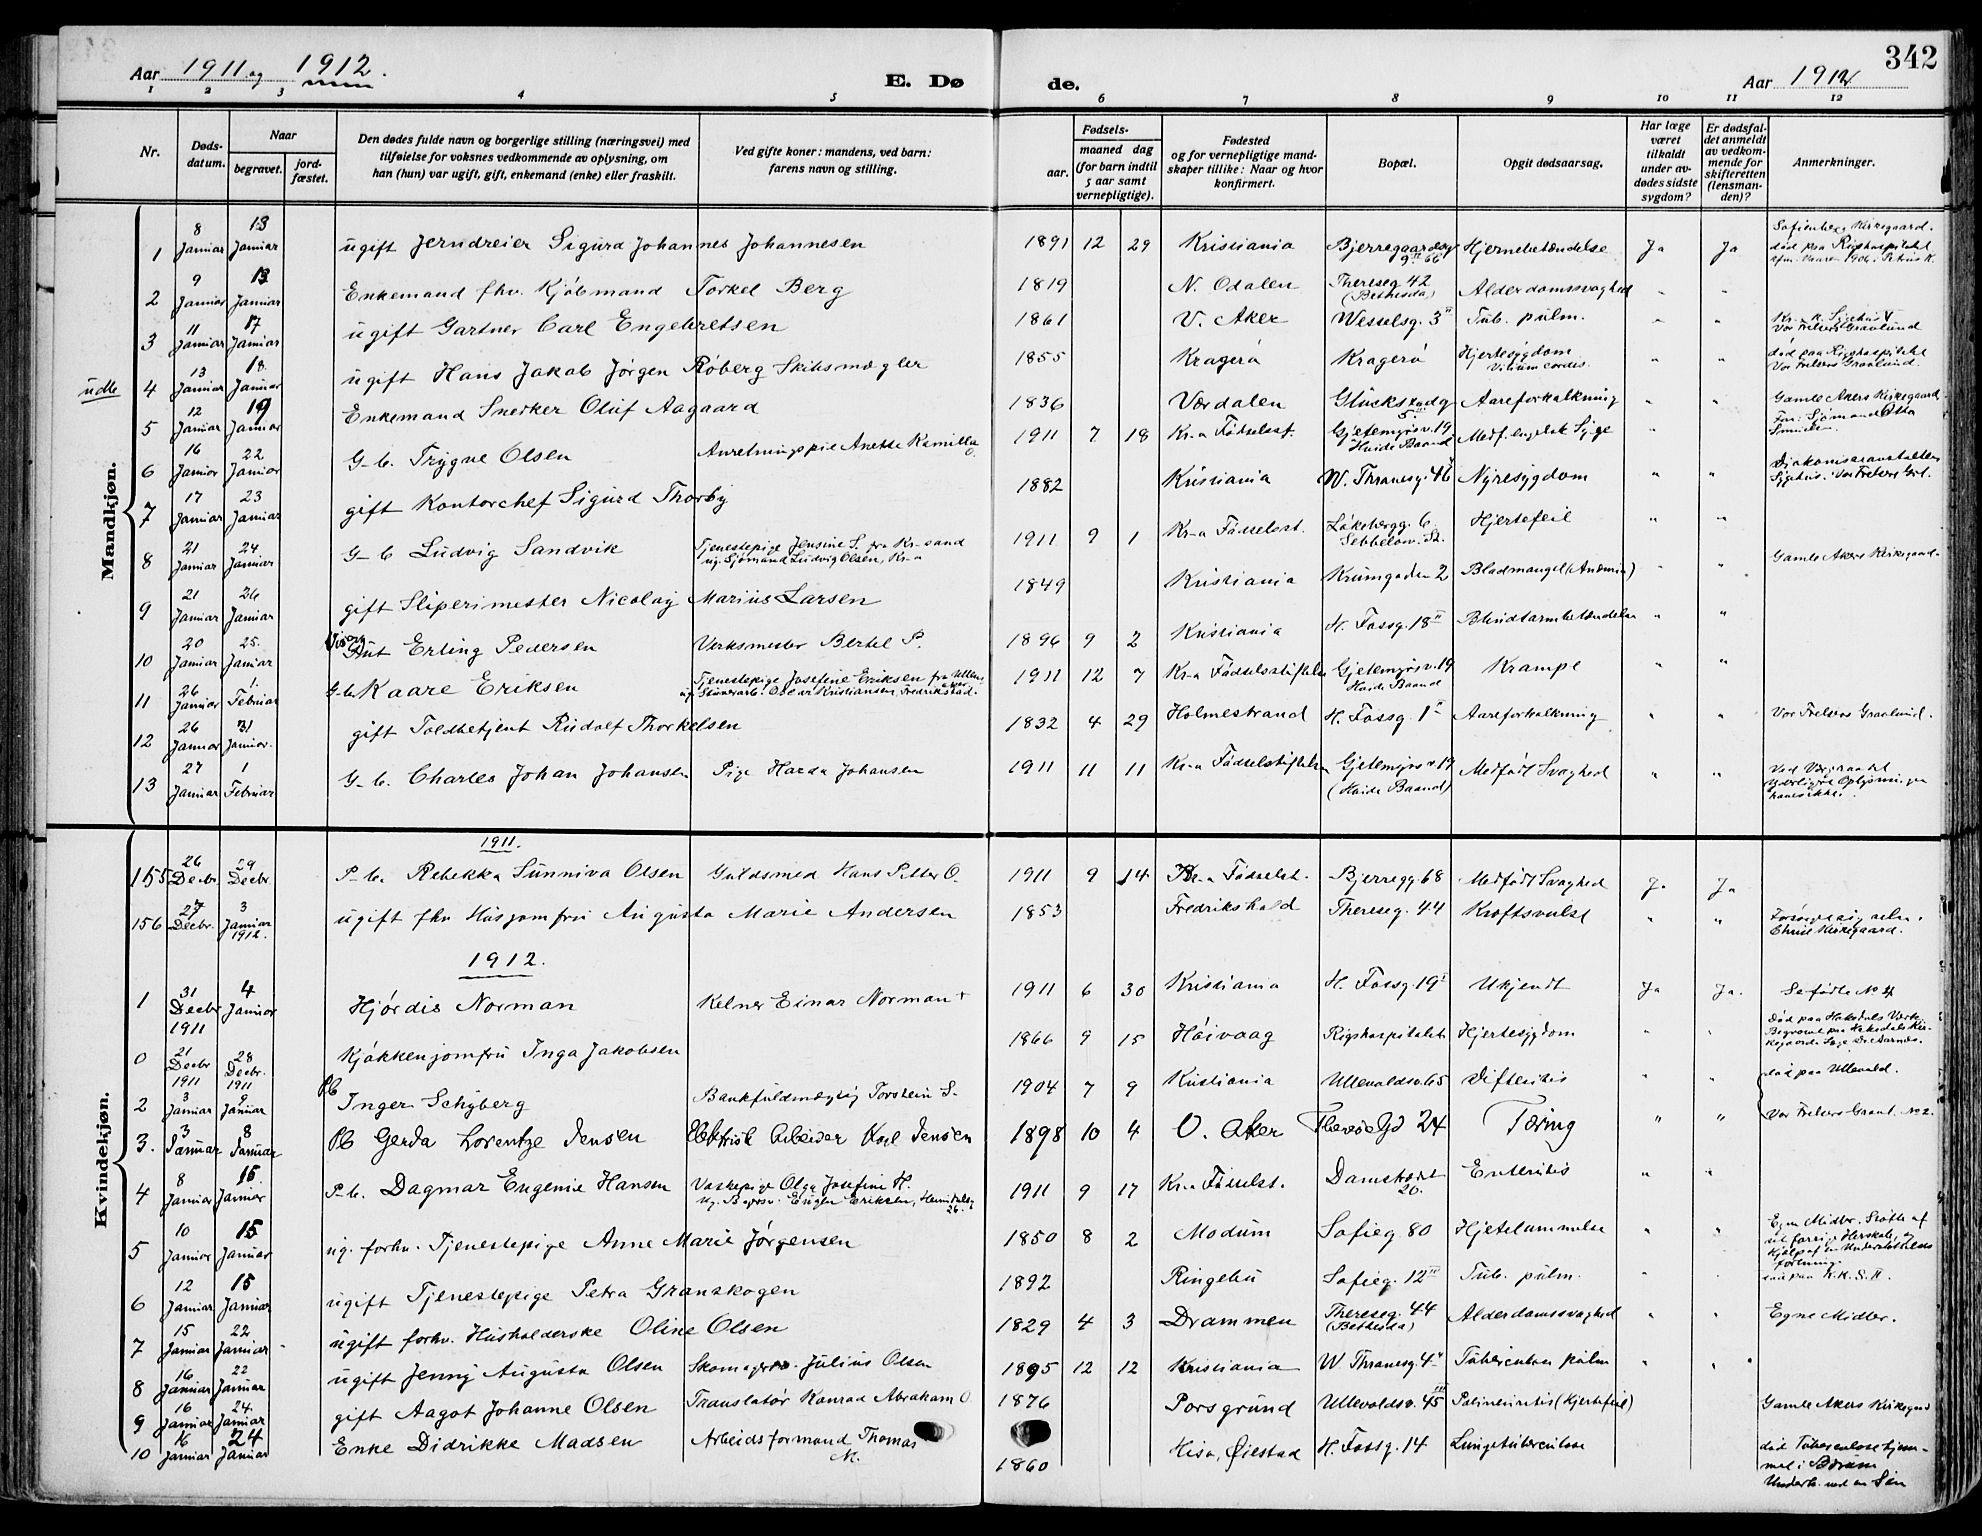 342
Aar 1911 og 1912.
E. Døde.
Aar 1912
1 2 3 4 5 6 7 8 9 10 11 12
Nr.
Døds-
datum.
Naar
begravet.
jord-
fæstet.
Den dødes fulde navn og borgerlige stilling (næringsvei) med
tilføielse for voksnes vedkommende av oplysning, om
han (hun) var ugift, gift, enkemand (enke) eller fraskilt.
Ved gifte koner: mandens, ved barn:
farens navn og stilling.
Fødsels-
aar. maaned dag
(for barn indtil
5 aar samt
vernepligtige).
Fødested
og for vernepligtige mand-
skaper tillike: Naar og hvor
konfirmert.
Bopæl.
Opgit dødsaarsag.
Har læge
været
tilkaldt
under av-
dødes sidste
sygdom?
Er dødsfal-
det anmeldt
av vedkom-
mende for
skifteretten
(lensman-
den)?
Anmerkninger.
Mandkjøn.
1 8 Januar 13 Januar ugift Jerndreier Sigurd Johannes Johannesen 1891 12 29 Kristiania Bjerregaardsg 66 Hjernebetændelse Ja Ja Sofienberg Kirkegaard. død paa Rigshospitalet
2 9 Januar 13 Januar Enkemand fhv. Kjöbmand Torkel Berg 1819 N. Odalen Thereseg 42 (Bethesda) Alderdomssvaghed " "
3 11 Januar 17 Januar ugift Gartner Carl Engebretsen 1861 V. Aker Wesselsg. 3 Tub. pulm. " " Kr.a K. Sygehus Vor Frelsers Gravlund
udb
4 13 Januar 18. Januar ugift Hans Jakob Jørgen Røberg Skibsmægler 1855 Kragerö Kragerö Hjertesygdom Vitium cordis. " " død paa Rigshospitalet Vor Frelsers Gravlund.
5 12 Januar 19 Januar Enkemand Snerker Oluf Aagaard 1836 Værdalen Glückstadg 5 Aareforkalkning " " Gamle Akers Kirkegaard
6 16 Januar 22 Januar G-b. Trygve Olsen Anretningspie Anette Kamilla O. 1911 7 18 Kr-a Födselsst. Gjetemyrsv. 19 Haide Baand Medf. engelsk Syge " Far: Sjömand Otto
7 17 Januar 23 Januar gift Kontorchef Sigurd Thorby 1882 Kristiania W. Thranesg. 46 Nyresygdom " " Diakonisseanstaltens Sygehus. Vor Frelsers Grl.
8 21 Januar 24 Januar G-b Ludvig Sandvik Tjenestepige Jensine S. fra Kr-sand ug. Sjømand Ludvig Olsen, Kr-a 1911 9 1 Kr-a Fødselsst. Løkebergg. 6 Sebbelow. St. Hjertefeil " "
9 21 Januar 26 Januar gift Sliperimester Nicolay Marius Larsen 1849 Kristiania Krumgaden 2 Blodmangel (Anæmia) " " Gamle Akers Kirkegaard.
10 20 Januar 25. Januar Gut Erling Pedersen Verksmester Bertel P. 1896 9 2 Kristiania H. Fossg. 18 Blindtarmbetændelse " "
11 26 Januar 1. Februar G-b. Kaare Eriksen Tjenestepige Josefine Eriksen fra Ullens aker. ug. Skiverarb. Oscar Kristiansen, Fredrikstad. 1911 12 7 Kr-a Fødselsstiftelse Gjetemyrsv. 19 Haide Baand Krampe " "
12 26 Januar 31 Januar. gift Toldbetjent Rudolf Thorkelsen 1832 4 29 Holmestrand H. Fossg. 1 Aareforkalkning " " Vor Frelsers Gravlund.
13 27 Januar 1 Februar G-b. Charles Johan Johansen Pige Harda Johansen 1911 11 11 Kr-a Fødselsstiftelse Gjetemyrsv 19 (Haide Baand) Medfødt Svaghed " " Ved Vergeraadet Yderligere Oplysninger haves ikke.
Kvindekjøn.
1911.
155 26 Decbr 29 Decbr P-b. Rebekka Sunniva Olsen Guldsmed Hans Petter O. 1911 9 14 Kr-a Fødselst. Bjerregg. 68 Medfødt Svaghed Ja Ja
156 27 Decbr. 3 Januar 1912. ugift fhv Husjomfru Augusta Marie Andersen 1853 Fredrikshald Thereseg. 44 Kræftsvulst " " Forsörget sig selv. Christ Kirkegaard.
1912.
1 31 Decbr 1911 4 Januar Hjørdis Norman Kelner Einar Norman 1911 6 30 Kristiania H. Fossg. 19 Ukjendt Ja Ja. Se fødte No 4
0 21 Decbr 1911 28 Decbr. 1911 Kjøkkenjomfru Inga Jakobsen 1866 9 15 Høivaag Rigshospitalet Hjertesygdom " " Død paa Haksdals Verk. Begravet paa Haksdals Kirkegaard.
2 3 Januar 9 Januar P.b Inger Schyberg Bankfuldmægtig Torstein S. 1904 7 9 Kristiania Ullevoldsv. 65 Difteritis " " død paa Ullevold. Vor Frelsers Gravl. No 2.
3. 3 Januar 8 Januar Pb Gerda Lorentze Jensen Elektrisk Arbeider Karl Jensen 1898 10 4 V. Aker Thereseg 24 Tæring " "
4 8 Januar 15. Januar P-b. Dagmar Eugenie Hansen Vaskepige Olga Josefine H. Ug. Eugen Eriksen, Heimdalsg 26. 1911 9 17 Kr-a Fødselst. Damstredet 20. Enteritis " "
5 10 Januar 15 Januar ug. forhv. Tjenestepige Anne Marie Jørgensen 1850 8 2 Modum Sofieg. 80 Hjertelammelse " " Egne Midler. Støtte af sit forrige Herskab, og Hjælp af en Understøttelses forening
6 12 Januar 15 Januar ugift Tjenestepige Petra Granskogen 1892 Ringebu Sofieg. 12 Tub. pulm. " " død paa K.K.S.H.
7 15 Januar 22 Januar ugift forhv. Husholderske Oline Olsen 1829 4 3 Drammen Thereseg. 44 (Bethesda) Alderdomssvaghed " " Egne Midler.
8 16 Januar 22 Januar ugift Jenny Augusta Olsen Skomagersv. Julius Olsen 1895 12 12 Kristiania W Thranesg. 4 Tuberculose pulm " "
9 16 Januar 24. Januar gift Aagot Johanne Olsen Translatør Konrad Abraham O 1876 Porsgrund Ullevoldsv. 45 (Hjertefeil) Gamle Akers Kirkegaard
10 16 Januar 24 Januar Enke Didrikke Madsen Arbeidsformand Thomas M. 1860 Hisø, Øiestad H. Fossg. 14 Lungetuberculose død Tuberculosehjemmet i Bærum Underh. ved en Søn